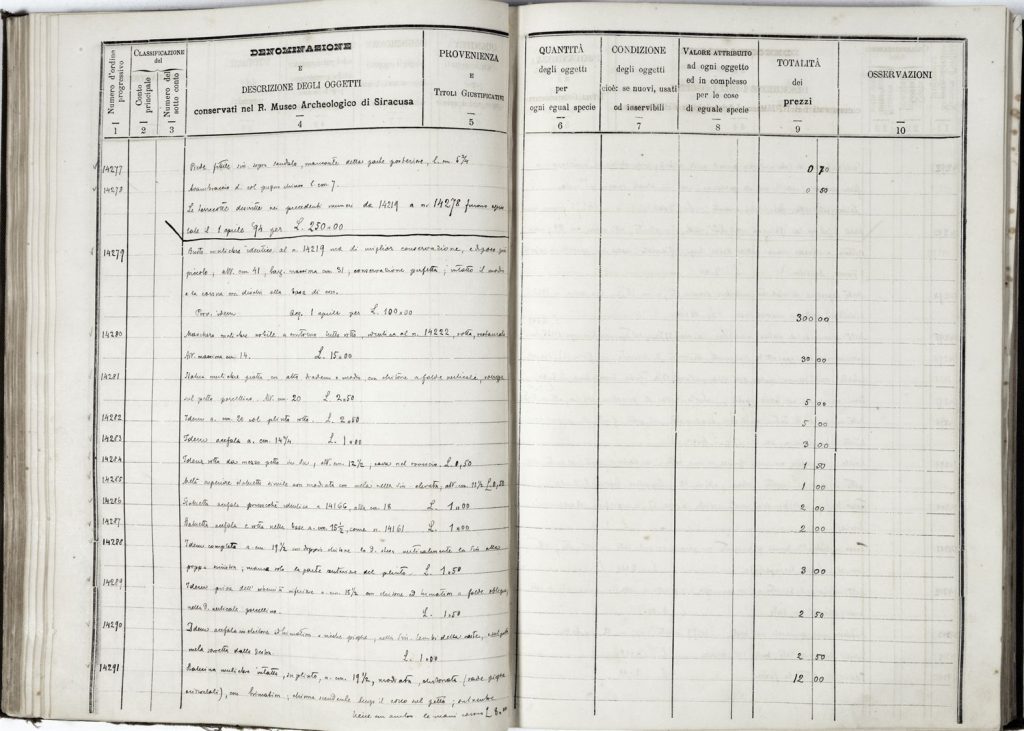 Numero d'ordine progressivo
CLASSIFICAZIONE del
Conto principale
Numero del sotto conto
DENOMINAZIONE
E
DESCRIZIONE DEGLI OGGETTI
conservati nel R. Museo Archeologico di Siracusa
PROVENIENZA
E
TITOLI GIUSTIFICATIVI
1 2 3 4 5
14277 Piede fittile sin. sopra sandalo, mancante della parte posteriore, l. cm. 6 1/2
14278 Avambraccio d. col pugno chiuso l. cm 7.
Le terrecotte descritte nei precedenti numeri da 14219 a n. 14278 furono
1 aprile '94 per L. 250=00
14279 Busto muliebre identico al n. 14219 ma di miglior conservazione, e di poco più
piccolo, alt. cm 41, larg. massima cm 31, conservazione perfetta; intatto il modio
e la corona con dischi alla base di esso.
Prov. idem acq. 1 aprile per L. 100=00
14280 Maschera muliebre nobile a contorno rotto, identica al n. 14222, rotta, restaurata
Alt. massima cm 14. L. 15=00
14281 Statua muliebre con alto diadema e modio, con chitone a falde verticali, sorregge
sul petto porcellino. Alt. cm 20 L. 2,50
14282 Idem a. cm. 20 col plinto rotto. L. 2,50
14283 Idem acefala a. cm. 14 1/4 L. 1=00
14284 Idem rotta da mezzo petto in su, alt. cm. 12 1/2, cava nel rovescio. L. 0,50
14285 Metà superiore statuetta simile non modiata con mela nella sin. elevata, alt. cm. 11 1/2 L. 0,50
14286 Statuetta acefala identica a 14166, alta cm 18 L. 1=00
14287 Statuetta acefala e rotta nella base a. cm. 15 1/2, come n. 14161 L. 1=00
14288 Idem completa a. cm 19 1/2 con doppio chitone la D. stesa verticalmente la sin. alla
poppa sinistra; manca solo la parte anteriore del plinto. L. 1,50
14289 Idem priva dell'estremità inferiore a. cm. 15 1/2 con chitone ed himation a falde oblique,
nella D. verticale porcellino. L. 1,50
14290 Idem acefala in chitone ed himation, nella sin. lembi della veste,
mela dalla destra. L. 1=00
14291 Statuina muliebre intatta, in plinto, a. cm. 19 1/2, modiata, chitonata
con himation, chiome scendenti lungo il collo sul petto,
le mani L. 8=00
QUANTITÀ
degli oggetti
per
ogni egual specie
CONDIZIONE
degli oggetti
cioè: se nuovi, usati
od inservibili
VALORE ATTRIBUITO
ad ogni oggetto
ed in complesso
per le cose
di eguale specie
TOTALITÀ
dei
prezzi
OSSERVAZIONI
6 7 8 9 10
0 70
0 50
300 00
30 00
5 00
5 00
3 00
1 50
1 00
2 00
2 00
3 00
2 50
2 50
12 00